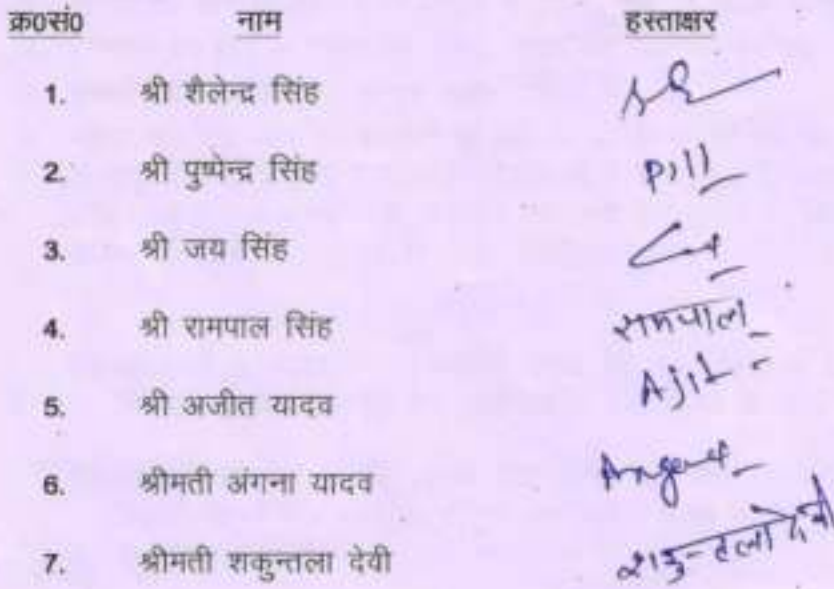 क्र0सं0 नाम हस्ताक्षर
1. श्री शैलेन्द्र सिंह
2. श्री पुष्पेन्द्र सिंह
3. श्री जय सिंह
4. श्री रामपाल सिंह रामपाल
5. श्री अजीत यादव Ajit
6. श्रीमती अंगना यादव
7. श्रीमती शकुन्तला देवी शकुन्तला देवी